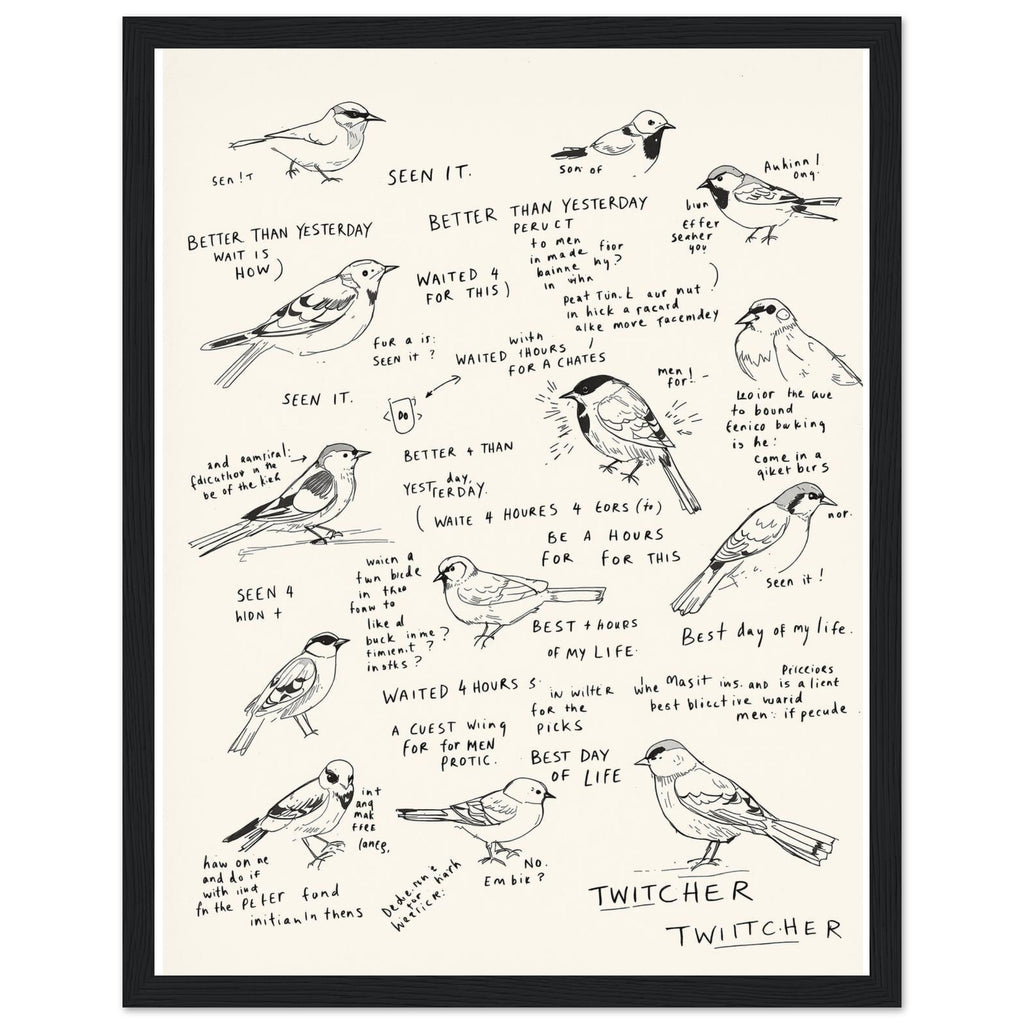 SEN!T
SEEN IT.
SON OF
BETTER THAN YESTERDAY
WAIT IS
HOW)
BETTER THAN YESTERDAY
PERUCT
to men
in made foor
bainne hy?
in whn
Effer
seaher
you
WAITED 4
FOR THIS)
peat Tun.L aur nut
in hick a racard
alke move Tacemdey
FUR A IS:
SEEN IT ?
with
WAITED 4HOURS
FOR A CHATES
men!
for!
SEEN IT.
DO
to bound
fenico barking
is he:
come in a
qiket birs
and
be of the
BETTER 4 THAN
YEST day,
TERDAY.
(WAITE 4 HOURES 4 EORS (to)
BE A HOURS
FOR FOR THIS
nor.
seen it!
waicn a
twn bicde
in theo
fonw to
like al
buck in me?
timient?
inotks?
SEEN 4
hION +
BEST + HOURS
OF MY LIFE.
Best day of my life.
WAITED 4 HOURS S.
in wilter
for the
PICKS
Priceiors
whe Masit ins. and is a lient
best blicctive warid
men: if pecude.
A CUEST Wiing
FOR for MEN
PROTIC.
BEST DAY
OF LIFE
int
ang
mak
free
(aneg,
haw on ne
and do if
with
fn the PETER fond
initianIn thens
No.
Embik?
TWITCHER
TWIITC.HER